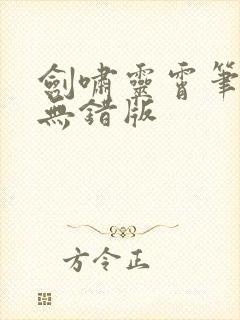 劍嘯靈霄筆
無錯版
方令正